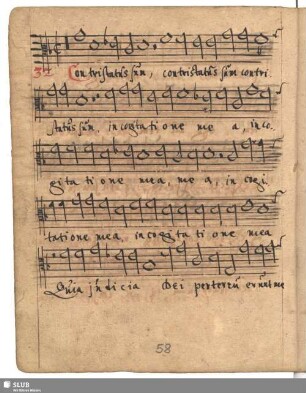 37 Contristatus sum, contristatus sum contri-
status sum, in cogitatione mea, in co-
gitatione mea, mea, in cogi-
tatione mea in cogitatione mea
Quia judicia Dei perterrue
58
SLUB